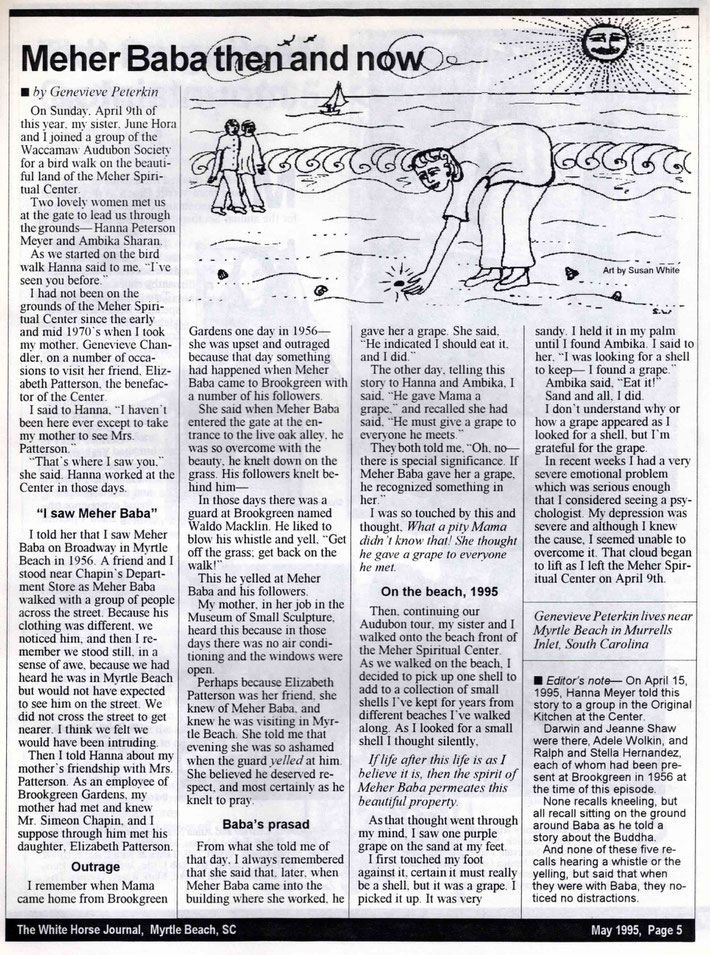 Meher Baba then and now
■ by Genevieve Peterkin
On Sunday, April 9th of
this year, my sister, June Hora
and I joined a group of the
Waccamaw Audubon Society
for a bird walk on the beauti-
ful land of the Meher Spiri-
tual Center.
Two lovely women met us
at the gate to lead us through
the grounds— Hanna Peterson
Meyer and Ambika Sharan.
As we started on the bird
walk Hanna said to me, "I've
seen you before."
I had not been on the
grounds of the Meher Spiri-
tual Center since the early
and mid 1970's when I took
my mother, Genevieve Chan-
dler, on a number of occa-
sions to visit her friend, Eliz-
abeth Patterson, the benefac-
tor of the Center.
I said to Hanna, "I haven't
been here ever except to take
my mother to see Mrs.
Patterson."
"That's where I saw you,"
she said. Hanna worked at the
Center in those days.
"I saw Meher Baba"
I told her that I saw Meher
Baba on Broadway in Myrtle
Beach in 1956. A friend and I
stood near Chapin's Depart-
ment Store as Meher Baba
walked with a group of people
across the street. Because his
clothing was different, we
noticed him, and then I re-
member we stood still, in a
sense of awe, because we had
heard he was in Myrtle Beach
but would not have expected
to see him on the street. We
did not cross the street to get
nearer. I think we felt we
would have been intruding.
Then I told Hanna about my
mother's friendship with Mrs.
Patterson. As an employee of
Brookgreen Gardens, my
mother had met and knew
Mr. Simeon Chapin, and I
suppose through him met his
daughter, Elizabeth Patterson.
Outrage
I remember when Mama
came home from Brookgreen
Art by Susan White
S.W.
Gardens one day in 1956—
she was upset and outraged
because that day something
had happened when Meher
Baba came to Brookgreen with
a number of his followers.
She said when Meher Baba
entered the gate at the en-
trance to the live oak alley, he
was so overcome with the
beauty, he knelt down on the
grass. His followers knelt be-
hind him—
In those days there was a
guard at Brookgreen named
Waldo Macklin. He liked to
blow his whistle and yell, "Get
off the grass; get back on the
walk!"
This he yelled at Meher
Baba and his followers.
My mother, in her job in the
Museum of Small Sculpture,
heard this because in those
days there was no air condi-
tioning and the windows were
open.
Perhaps because Elizabeth
Patterson was her friend, she
knew of Meher Baba, and
knew he was visiting in Myr-
tle Beach. She told me that
evening she was so ashamed
when the guard yelled at him.
She believed he deserved re-
spect, and most certainly as he
knelt to pray.
Baba's prasad
From what she told me of
that day, I always remembered
that she said that, later, when
Meher Baba came into the
building where she worked, he
gave her a grape. She said,
"He indicated I should eat it,
and I did."
The other day, telling this
story to Hanna and Ambika, I
said, "He gave Mama a
grape," and recalled she had
said, "He must give a grape to
everyone he meets."
They both told me, "Oh, no—
there is special significance. If
Meher Baba gave her a grape,
he recognized something in
her."
I was so touched by this and
thought, What a pity Mama
didn't know that! She thought
he gave a grape to everyone
he met.
On the beach, 1995
Then, continuing our
Audubon tour, my sister and I
walked onto the beach front of
the Meher Spiritual Center.
As we walked on the beach, I
decided to pick up one shell to
add to a collection of small
shells I've kept for years from
different beaches I've walked
along. As I looked for a small
shell I thought silently,
If life after this life is as I
believe it is, then the spirit of
Meher Baba permeates this
beautiful property.
As that thought went through
my mind, I saw one purple
grape on the sand at my feet.
I first touched my foot
against it, certain it must really
be a shell, but it was a grape. I
picked it up. It was very
sandy. I held it in my palm
until I found Ambika. I said to
her, "I was looking for a shell
to keep— I found a grape."
Ambika said, "Eat it!"
Sand and all, I did.
I don't understand why or
how a grape appeared as I
looked for a shell, but I'm
grateful for the grape.
In recent weeks I had a very
severe emotional problem
which was serious enough
that I considered seeing a psy-
chologist. My depression was
severe and although I knew
the cause, I seemed unable to
overcome it. That cloud began
to lift as I left the Meher Spir-
itual Center on April 9th.
Genevieve Peterkin lives near
Myrtle Beach in Murrells
Inlet, South Carolina
■ Editor's note— On April 15,
1995, Hanna Meyer told this
story to a group in the Original
Kitchen at the Center.
Darwin and Jeanne Shaw
were there, Adele Wolkin, and
Ralph and Stella Hernandez,
each of whom had been pre-
sent at Brookgreen in 1956 at
the time of this episode.
None recalls kneeling, but
all recall sitting on the ground
around Baba as he told a
story about the Buddha.
And none of these five re-
calls hearing a whistle or the
yelling, but said that when
they were with Baba, they no-
ticed no distractions.
The White Horse Journal, Myrtle Beach, SC
May 1995, Page 5